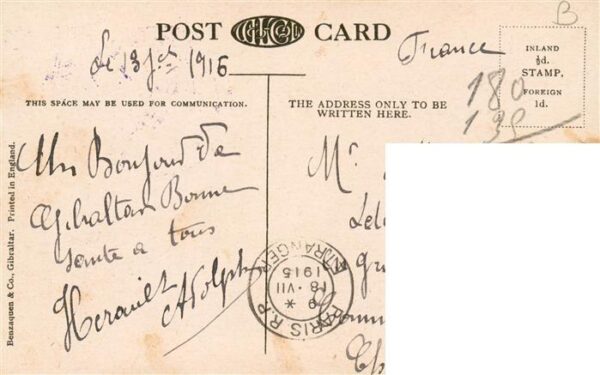 POST CARD
Le 13 jet 1915
France
INLAND
½d.
STAMP,
FOREIGN
1d.
B
180
THIS SPACE MAY BE USED FOR COMMUNICATION.
THE ADDRESS ONLY TO BE
WRITTEN HERE.
Un Bonjour de
Gibraltar Bonne
Sante a tous
Herault
Adolphe
Mr
PARIS R.P.
9 *
18 · VII
1915
ETRANGER
Benzaquen & Co., Gibraltar. Printed in England.